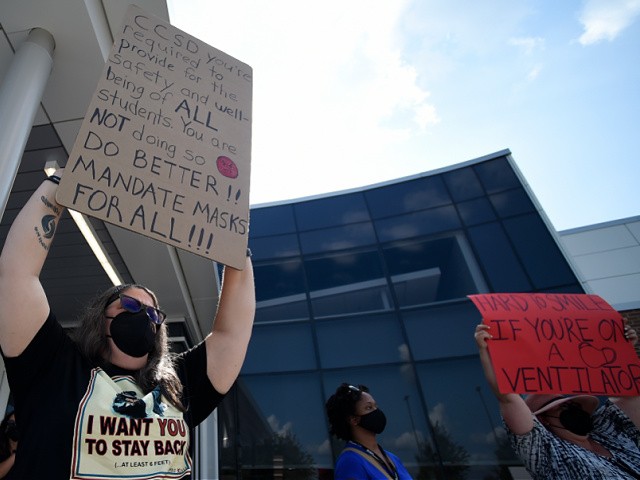 CCSD you're
required to
provide for the
safety and well-
being of ALL
students. You are
NOT doing so
DO BETTER!!
MANDATE MASKS
FOR ALL!!!
I WANT YOU
TO STAY BACK
(...AT LEAST 6 FEET)
HARD TO SMILE
IF YOU'RE ON
A
VENTILATOR